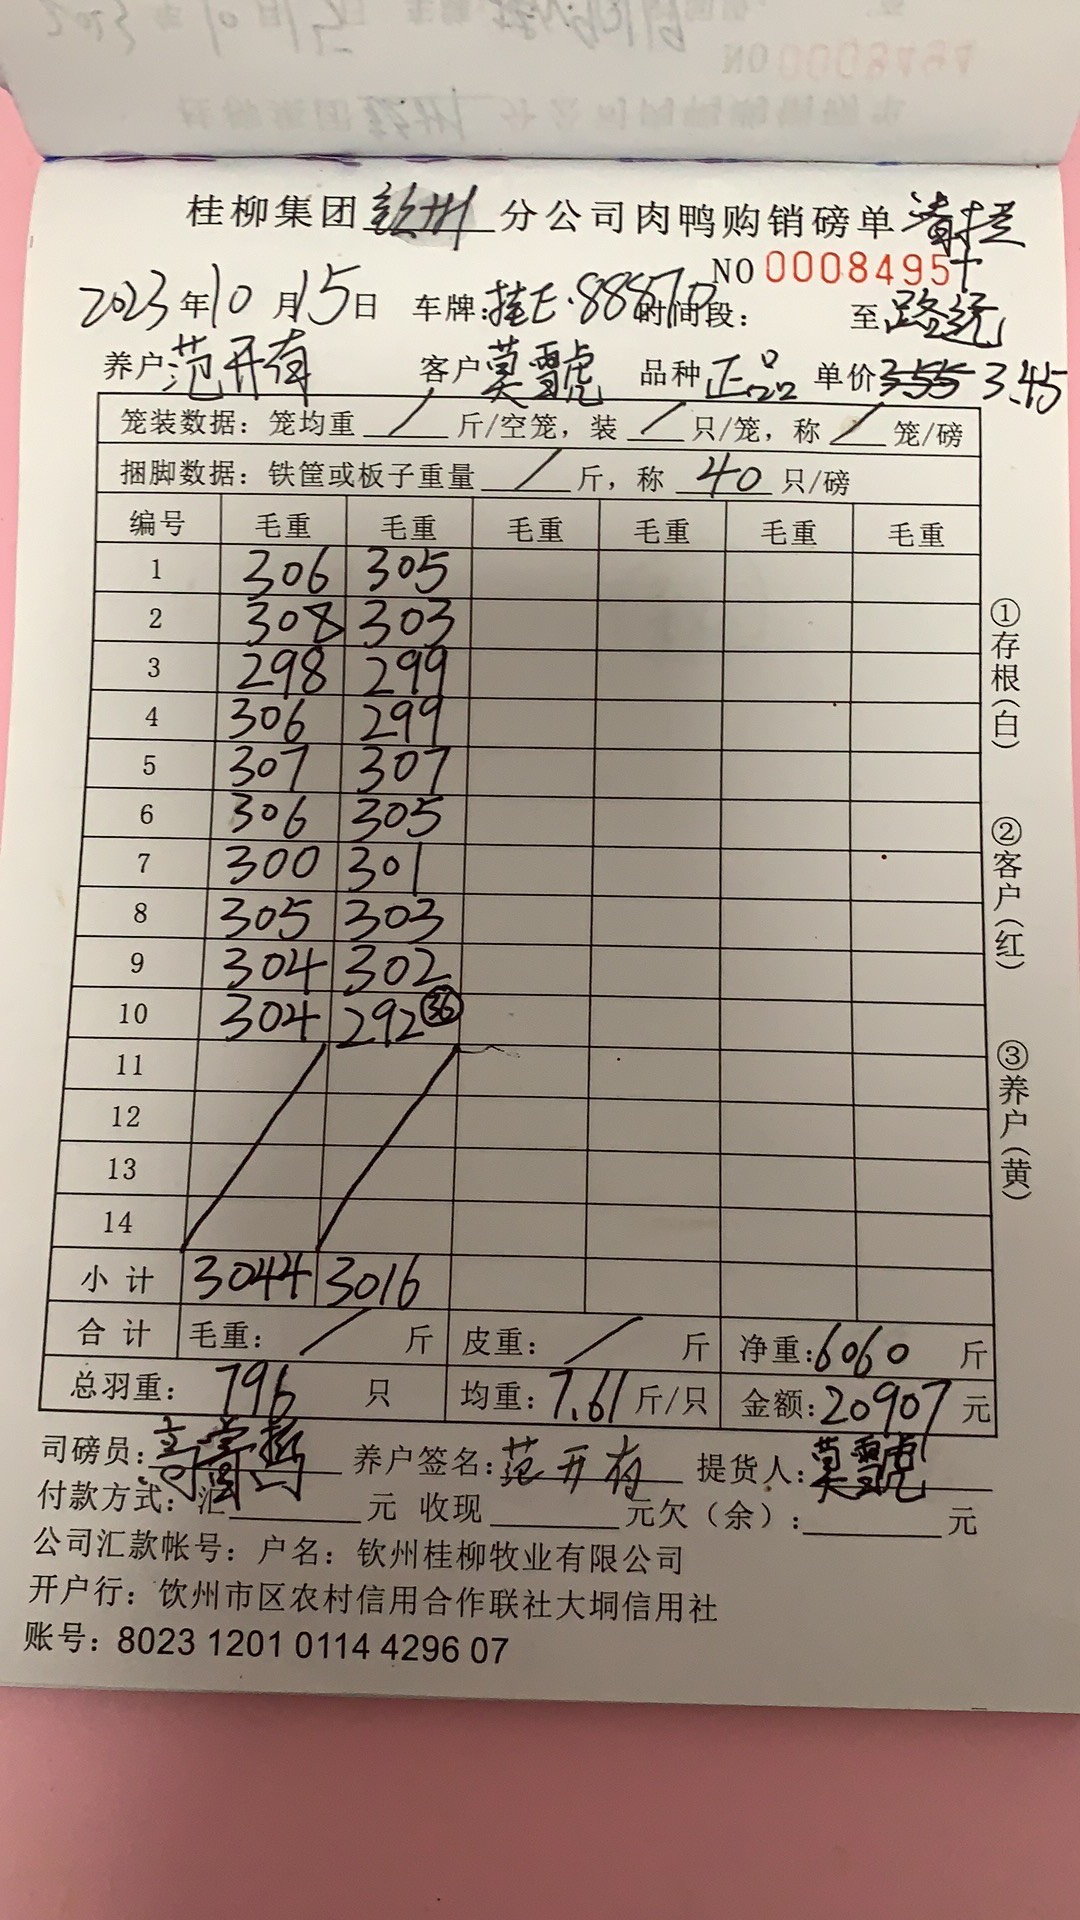 桂柳集团钦州分公司肉鸭购销磅单 清提
NO 0008495 +
2023年10月15日 车牌:桂E·88870 时间段: 至 路远
养户范开有 客户莫雪虎 品种正品 单价3.55 3.45
笼装数据:笼均重 / 斤/空笼,装 / 只/笼,称 / 笼/磅
捆脚数据:铁筐或板子重量 / 斤,称 40 只/磅
编号 毛重 毛重 毛重 毛重 毛重 毛重
1 306 305
2 308 303
3 298 299
4 306 299
5 307 307
6 306 305
7 300 301
8 305 303
9 304 302
10 304 292 36
11
12
13
14
小计 3044 3016
合计 毛重: / 斤 皮重: / 斤 净重:6060 斤
总羽重: 796 只 均重:7.61斤/只 金额:20907元
司磅员: 养户签名:范开有 提货人:莫雪虎
付款方式:汇 元 收现 元欠(余): 元
公司汇款帐号:户名:钦州桂柳牧业有限公司
开户行:钦州市区农村信用合作联社大垌信用社
账号:8023 1201 0114 4296 07
①存根(白)
②客户(红)
③养户(黄)